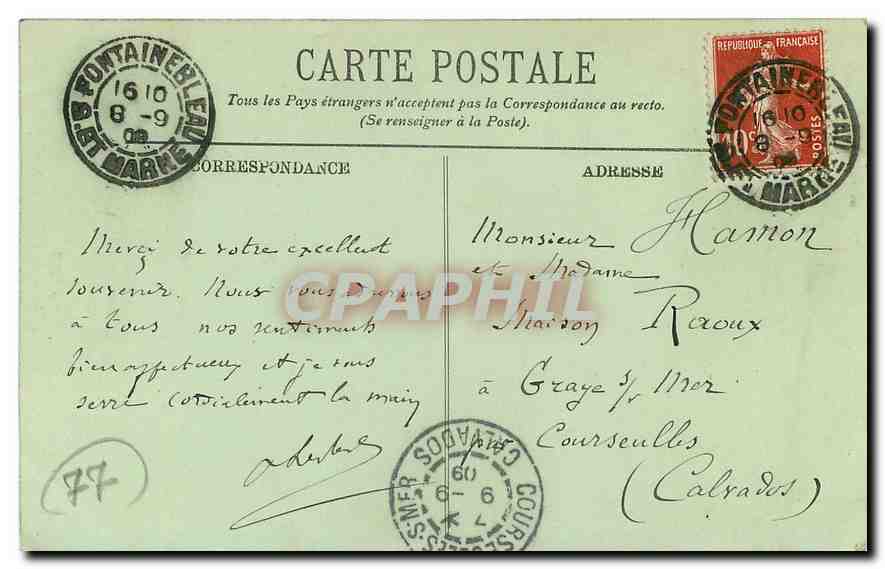 CARTE POSTALE
Tous les Pays étrangers n'acceptent pas la Correspondance au recto.
(Se renseigner à la Poste).
CORRESPONDANCE
ADRESSE
FONTAINEBLEAU
16 10
8 -9
09
S. ET MARNE
REPUBLIQUE FRANÇAISE
10 c
POSTES
FONTAINEBLEAU
16 10
8 -9
ET MARNE
Merci de votre excellent
souvenir. Nous vous adressons
à tous nos sentiments
bien affectueux et je vous
serre cordialement la main
77
Monsieur Hamon
et Madame
Maison Raoux
à Graye s/ Mer
par Courseulles
(Calvados)
COURSEULLES-S-MER
9 -9
09
CALVADOS
CPAPHIL